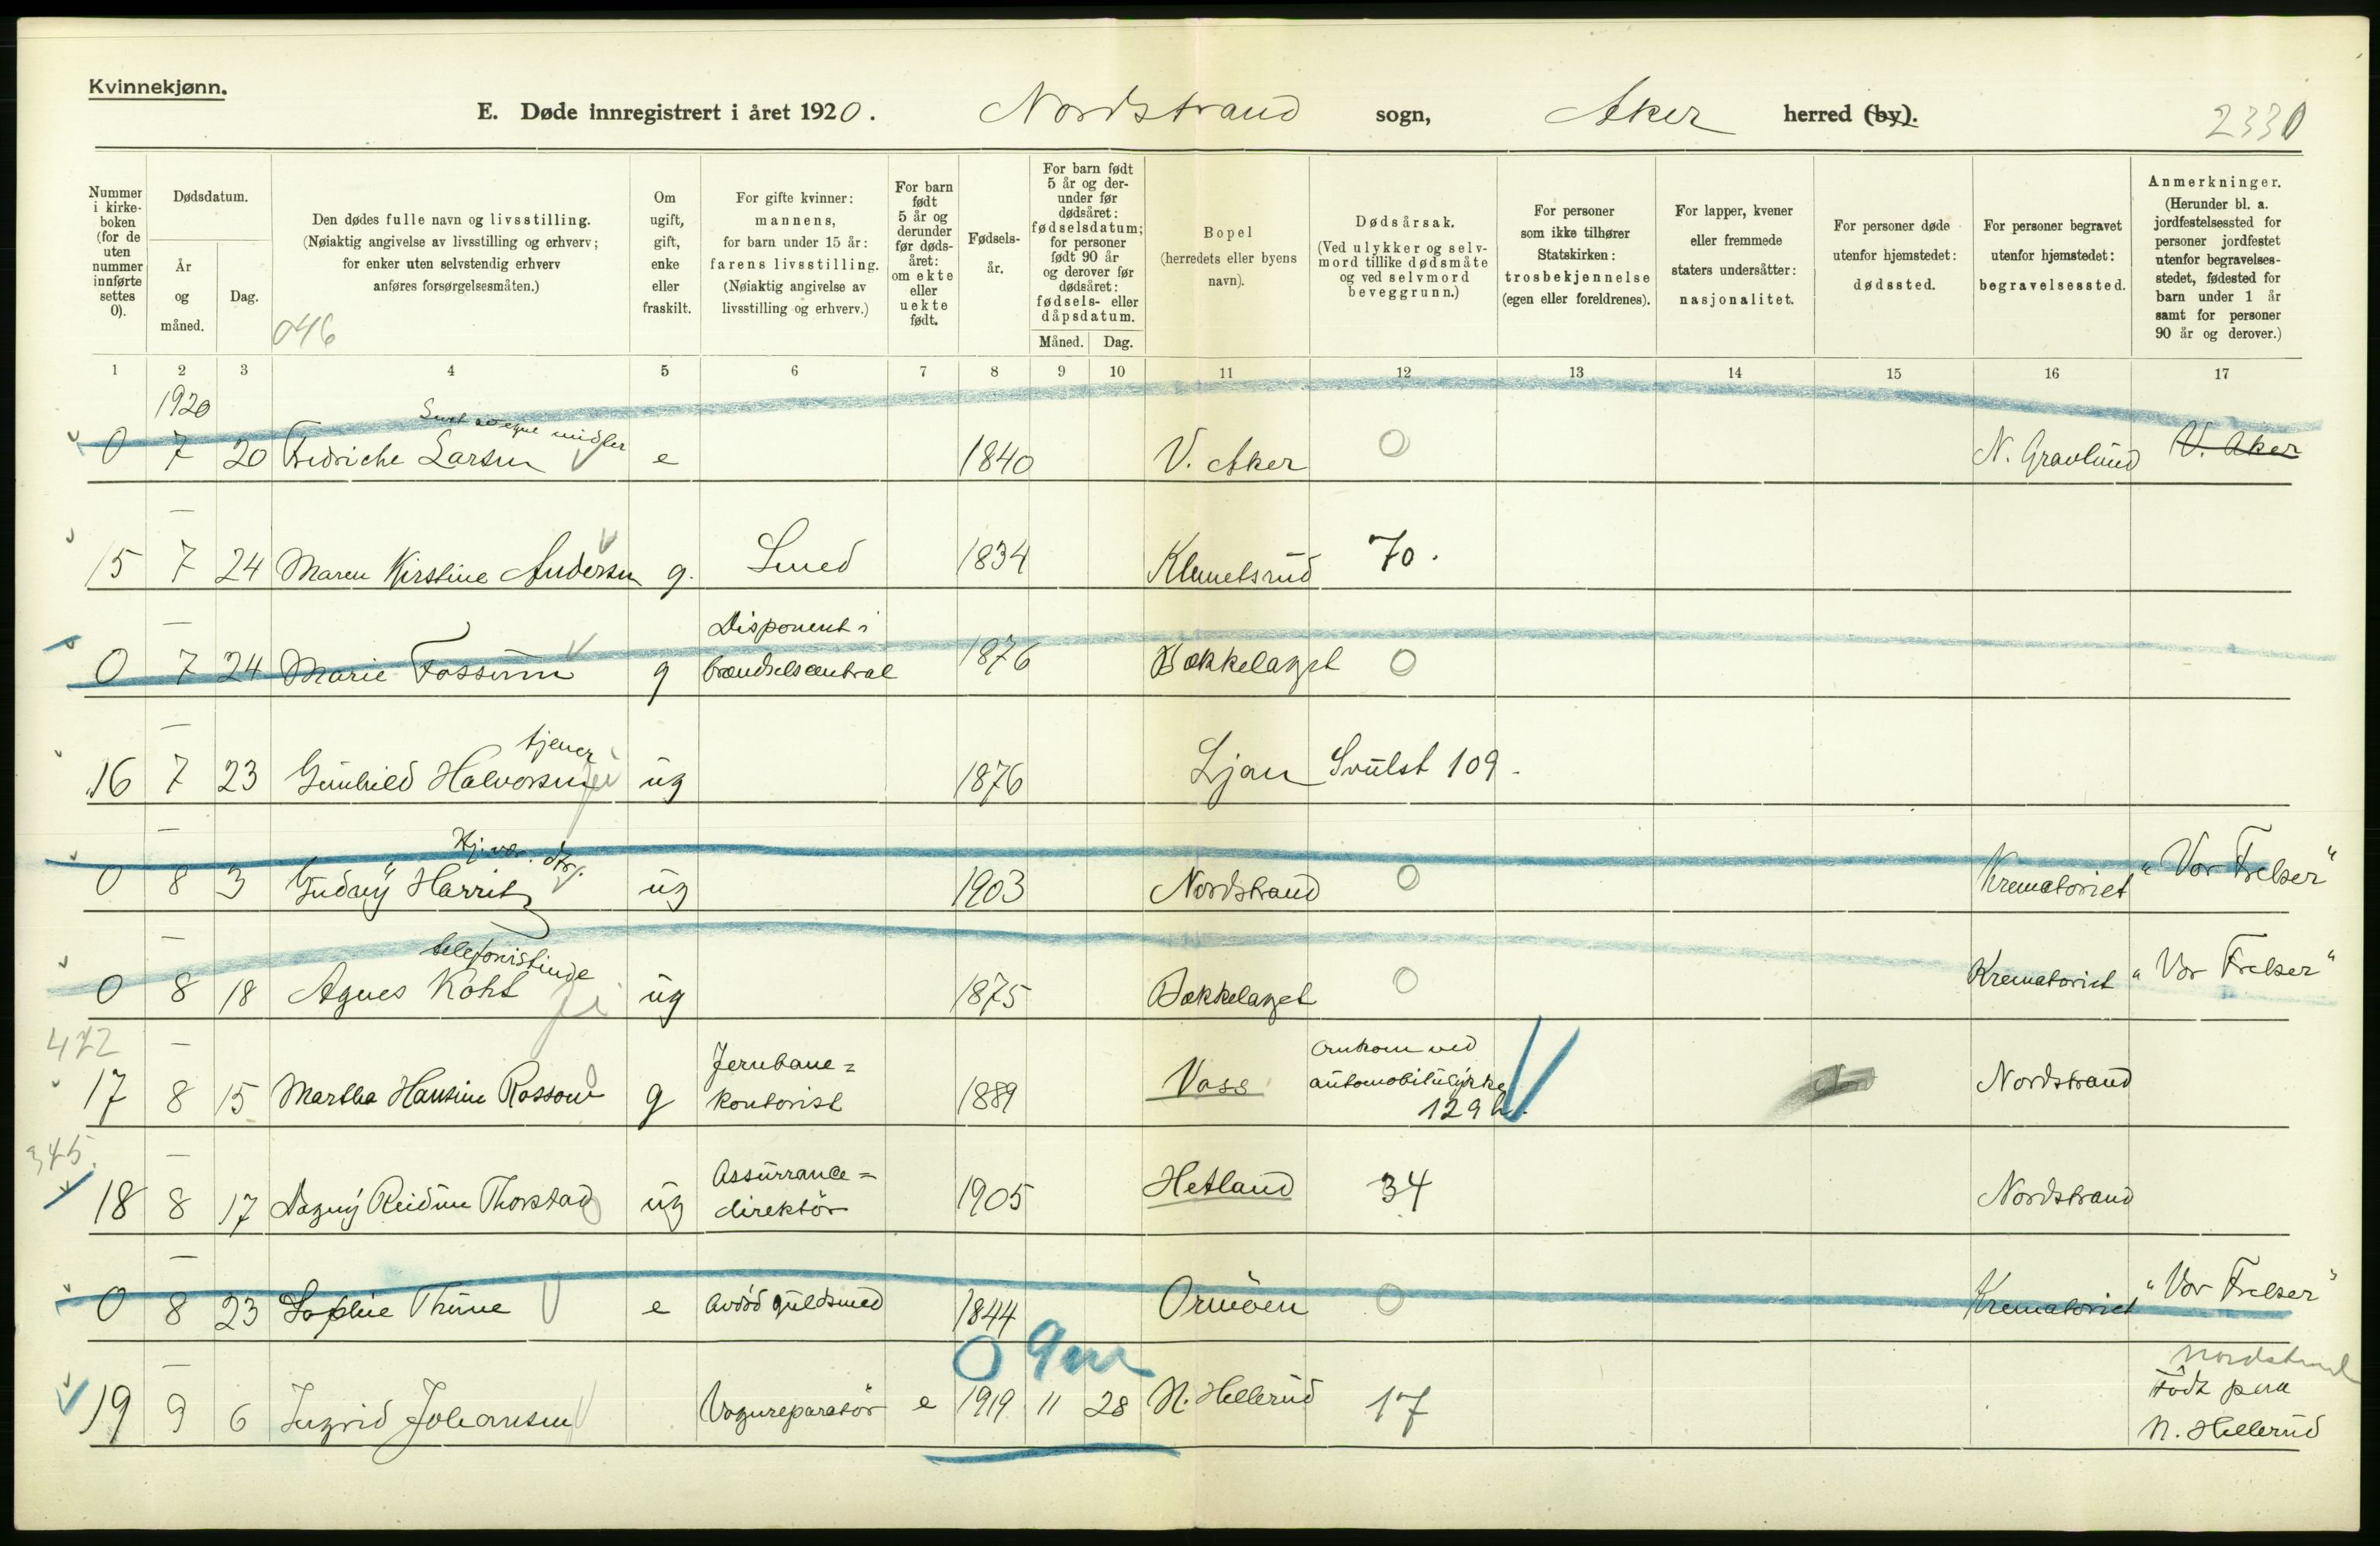 Kvinnekjønn.
E. Døde innregistrert i året 1920. Nordstrand sogn, Aker herred (by).
2330
Nummer i kirkeboken (for de uten nummer innførte settes 0).
Dødsdatum.
År og måned.
Dag.
Den dødes fulle navn og livsstilling.
(Nøiaktig angivelse av livsstilling og erhverv;
for enker uten selvstendig erhverv
anføres forsørgelsesmåten.)
046
Om ugift, gift, enke eller fraskilt.
For gifte kvinner:
mannens,
for barn under 15 år:
farens livsstilling.
(Nøiaktig angivelse av
livsstilling og erhverv.)
For barn født 5 år og derunder før dødsåret: om ekte eller uekte født.
Fødselsår.
For barn født 5 år og derunder før dødsåret: fødselsdatum; for personer født 90 år og derover før dødsåret: fødsels- eller dåpsdatum.
Måned. Dag.
Bopel
(herredets eller byens
navn).
Dødsårsak.
(Ved ulykker og selvmord tillike dødsmåte
og ved selvmord
beveggrunn.)
For personer
som ikke tilhører
Statskirken:
trosbekjennelse
(egen eller foreldrenes).
For lapper, kvener
eller fremmede
staters undersåtter:
nasjonalitet.
For personer døde
utenfor hjemstedet:
dødssted.
For personer begravet
utenfor hjemstedet:
begravelsessted.
Anmerkninger.
(Herunder bl. a.
jordfestelsessted for
personer jordfestet
utenfor begravelsesstedet, fødested for
barn under 1 år
samt for personer
90 år og derover.)
1 2 3 4 5 6 7 8 9 10 11 12 13 14 15 16 17
1920
egne midler
0 7 20 Fredriche Larsen e 1840 V. Aker 0 N. Gravlund V. Aker
15 7 24 Maren Kirstine Andersen g. Smed 1834 Klemetsrud 70.
Disponent i
0 7 24 Marie Fossum g brændselscentral 1876 Bækkelaget 0
tjener
16 7 23 Gunhild Halvorsen ug 1876 Ljan Svulst 109.
0 8 3 Gudny Harritz ug 1903 Nordstrand 0 Krematoriet "Vor Frelser"
telefonistinde
0 8 18 Agnes Koht ug 1875 Bækkelaget 0 Krematoriet "Vor Frelser"
422
17 8 15 Martha Hansine Rossow g Jernbane=
kontorist 1889 Voss Omkom ved
automobilulykke
129 Nordstrand
345.
18 8 17 Dagny Reidun Thorstad ug Assurrance=
direktör 1905 Hetland 34 Nordstrand
0 8 23 Sophie Thune e Avdöd guldsmed 1844 Ormöen 0 Krematoriet "Vor Frelser"
0 9m
19 9 6 Ingrid Johansen Vognreparatör e 1919 11 28 N. Hellerud 17
Nordstrand
Födt paa
N. Hellerud